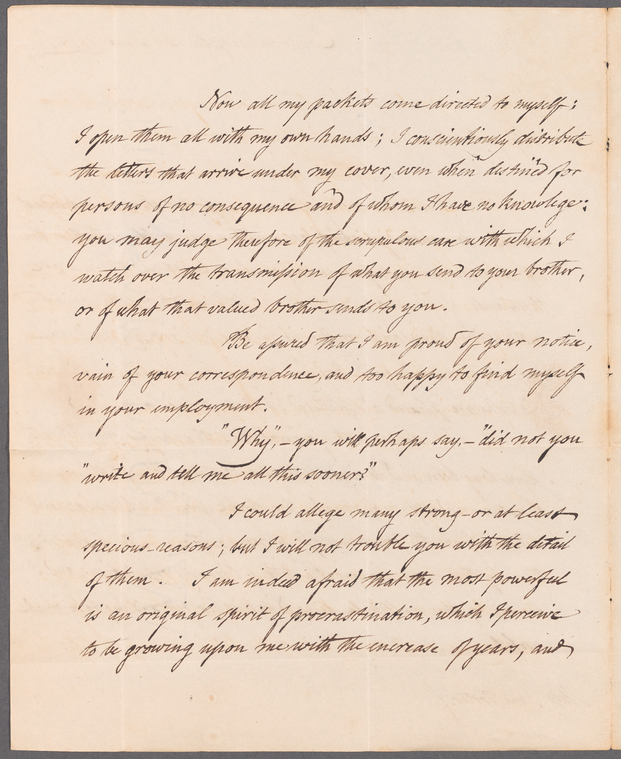 Now all my packets come directed to myself:
I open them all with my own hands; I conscientiously distribute
the letters that arrive under my cover, even when destin'd for
persons of no consequence and of whom I have no knowlege:
you may judge therefore of the scrupulous care with which I
watch over the transmission of what you send to your brother,
or of what that valued brother sends to you.
Be assured that I am proud of your notice,
vain of your correspondence, and too happy to find myself
in your employment.
"Why", – you will perhaps say, – "did not you
"write and tell me all this sooner?"
I could allege many strong – or at least
specious – reasons; but I will not trouble you with the detail
of them. I am indeed afraid that the most powerful
is an original spirit of procrastination, which I perceive
to be growing upon me with the encrease of years, and